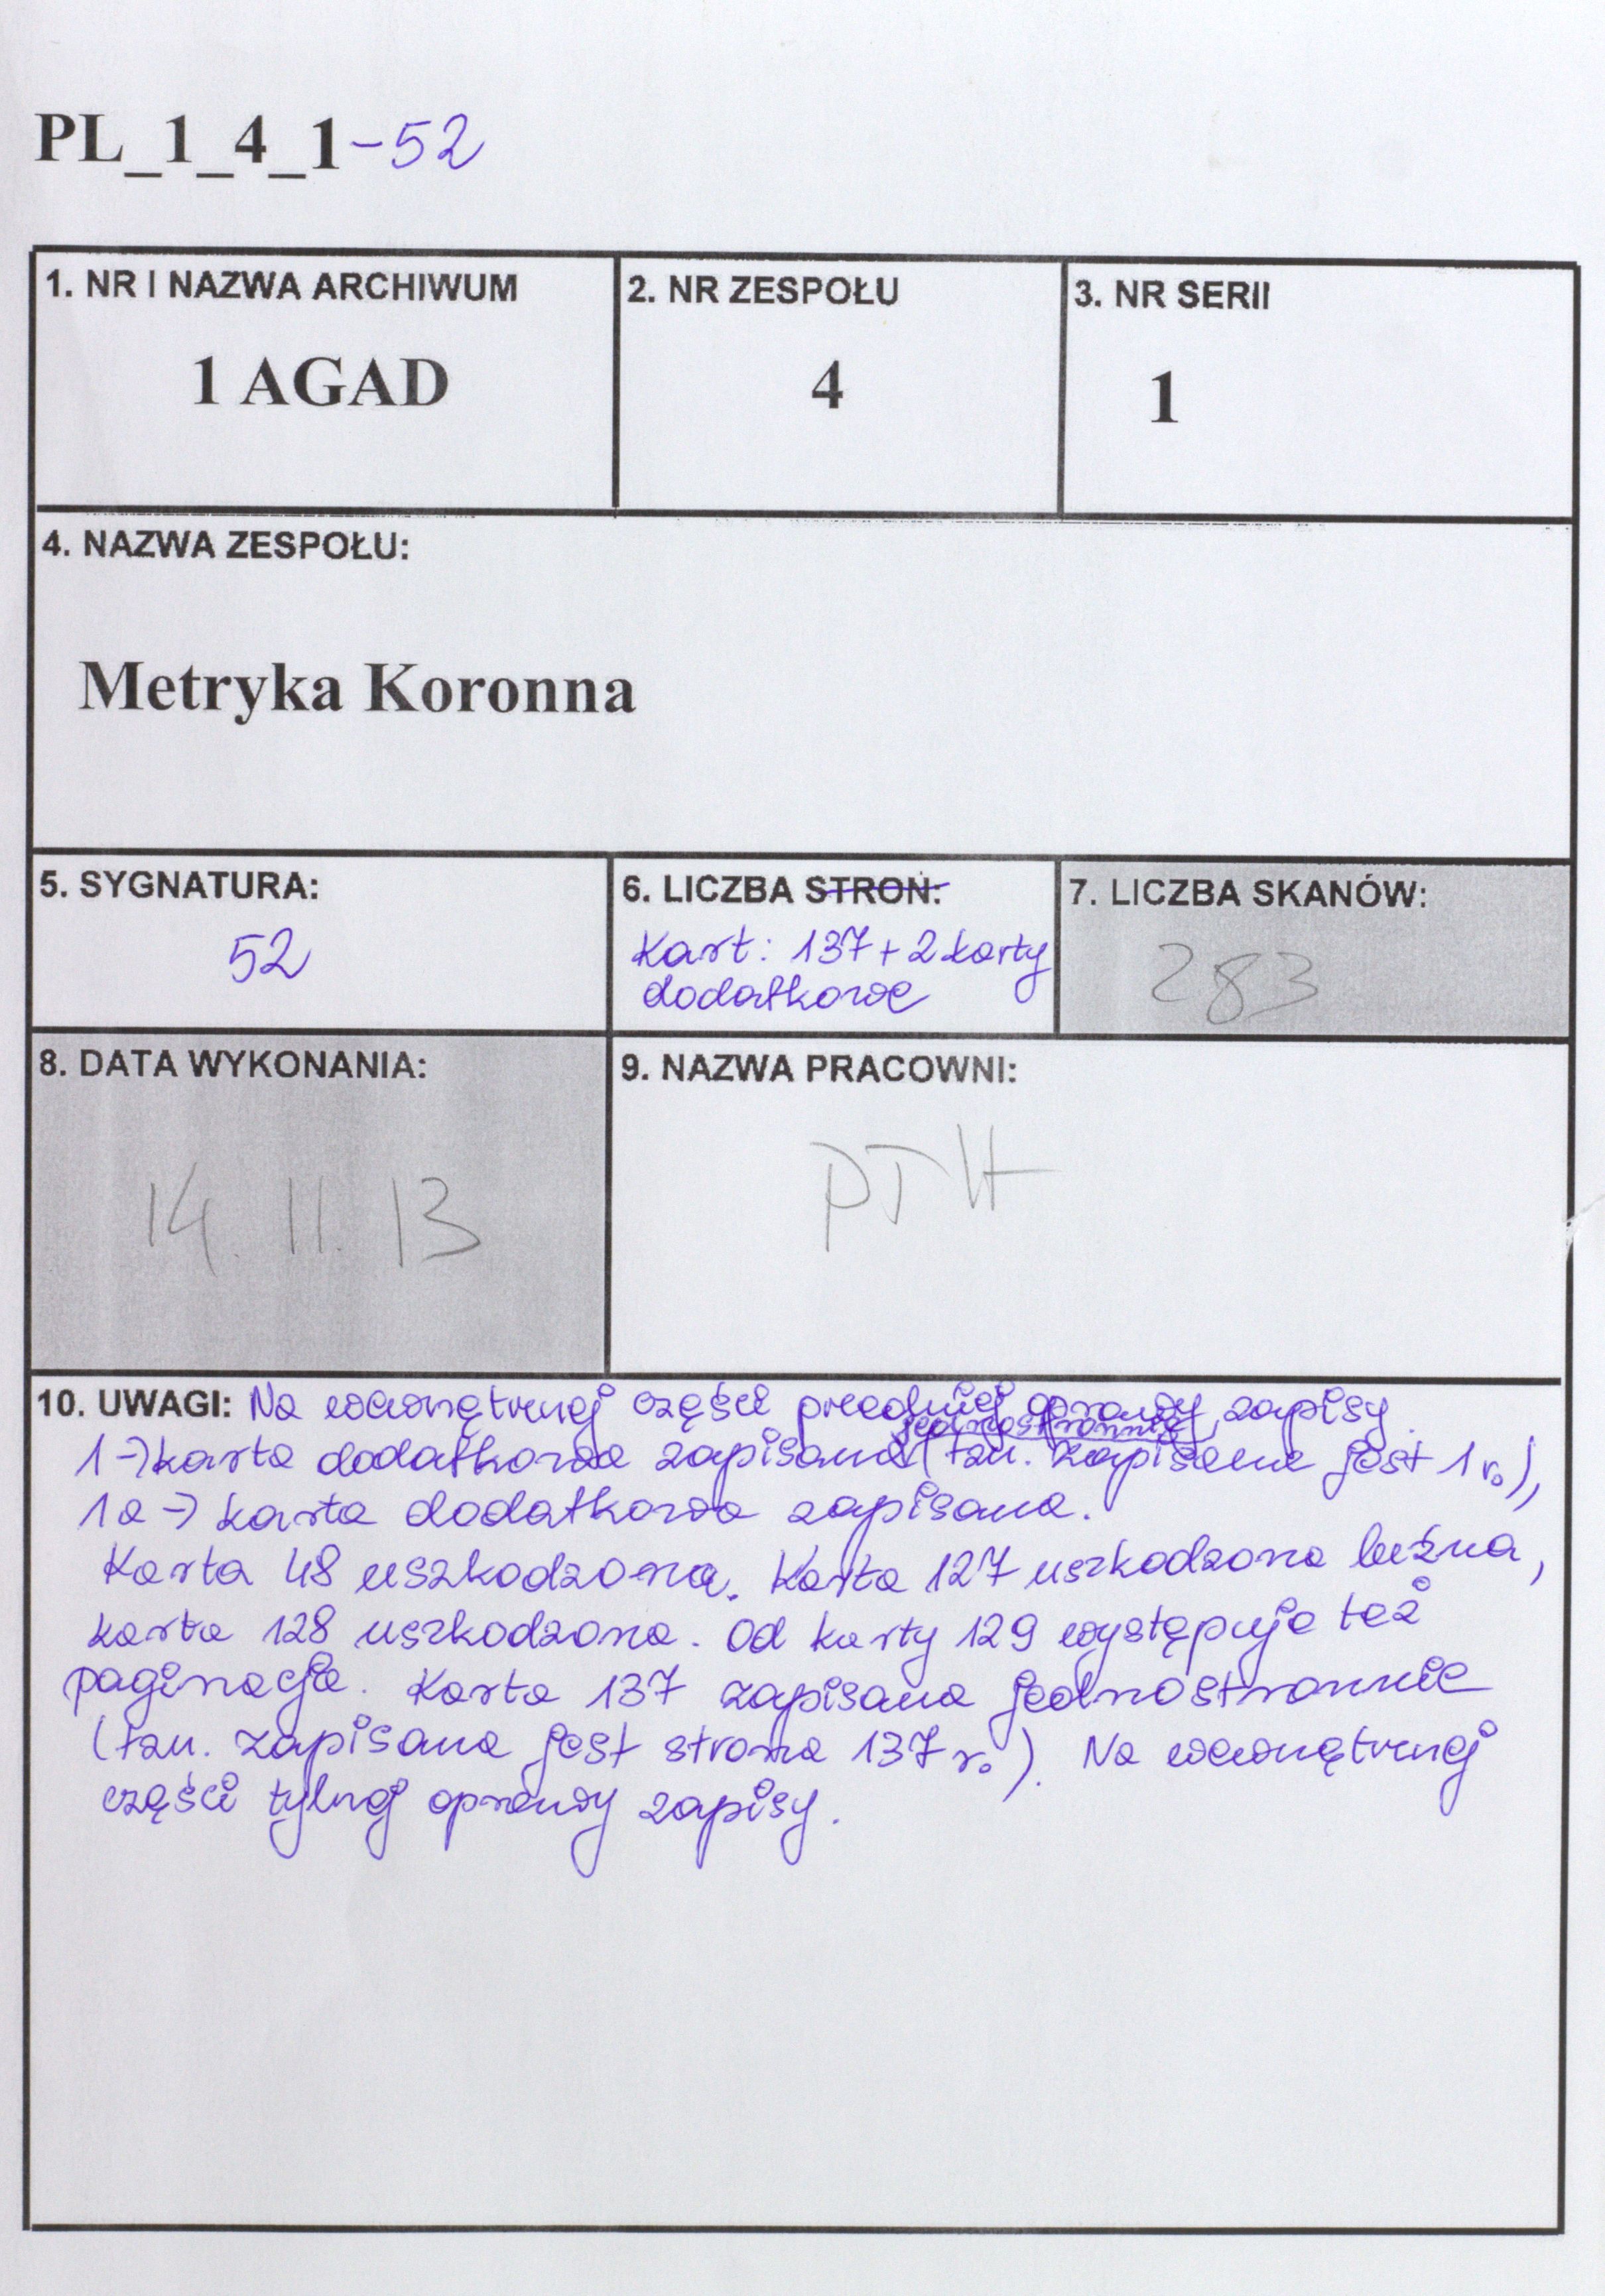 PL_1_4_1-52
1. NR I NAZWA ARCHIWUM
1 AGAD
2. NR ZESPOŁU
4
3. NR SERII
1
4. NAZWA ZESPOŁU:
Metryka Koronna
5. SYGNATURA:
52
6. LICZBA STRON:
Kart: 137 + 2 karty
dodatkowe
7. LICZBA SKANÓW:
283
8. DATA WYKONANIA:
14. 11. 13
9. NAZWA PRACOWNI:
PTH
10. UWAGI: Na wewnętrznej części przedniej oprawy zapisy.
jednostronnie
1 → karta dodatkowa zapisana (tzn. zapisane jest 1 r.),
1a → karta dodatkowa zapisana.
Karta 48 uszkodzona. Karta 127 uszkodzona luźna,
karta 128 uszkodzona. Od karty 129 występuje też
paginacja. Karta 137 zapisana jednostronnie
(tzn. zapisana jest strona 137 r.). Na wewnętrznej
części tylnej oprawy zapisy.